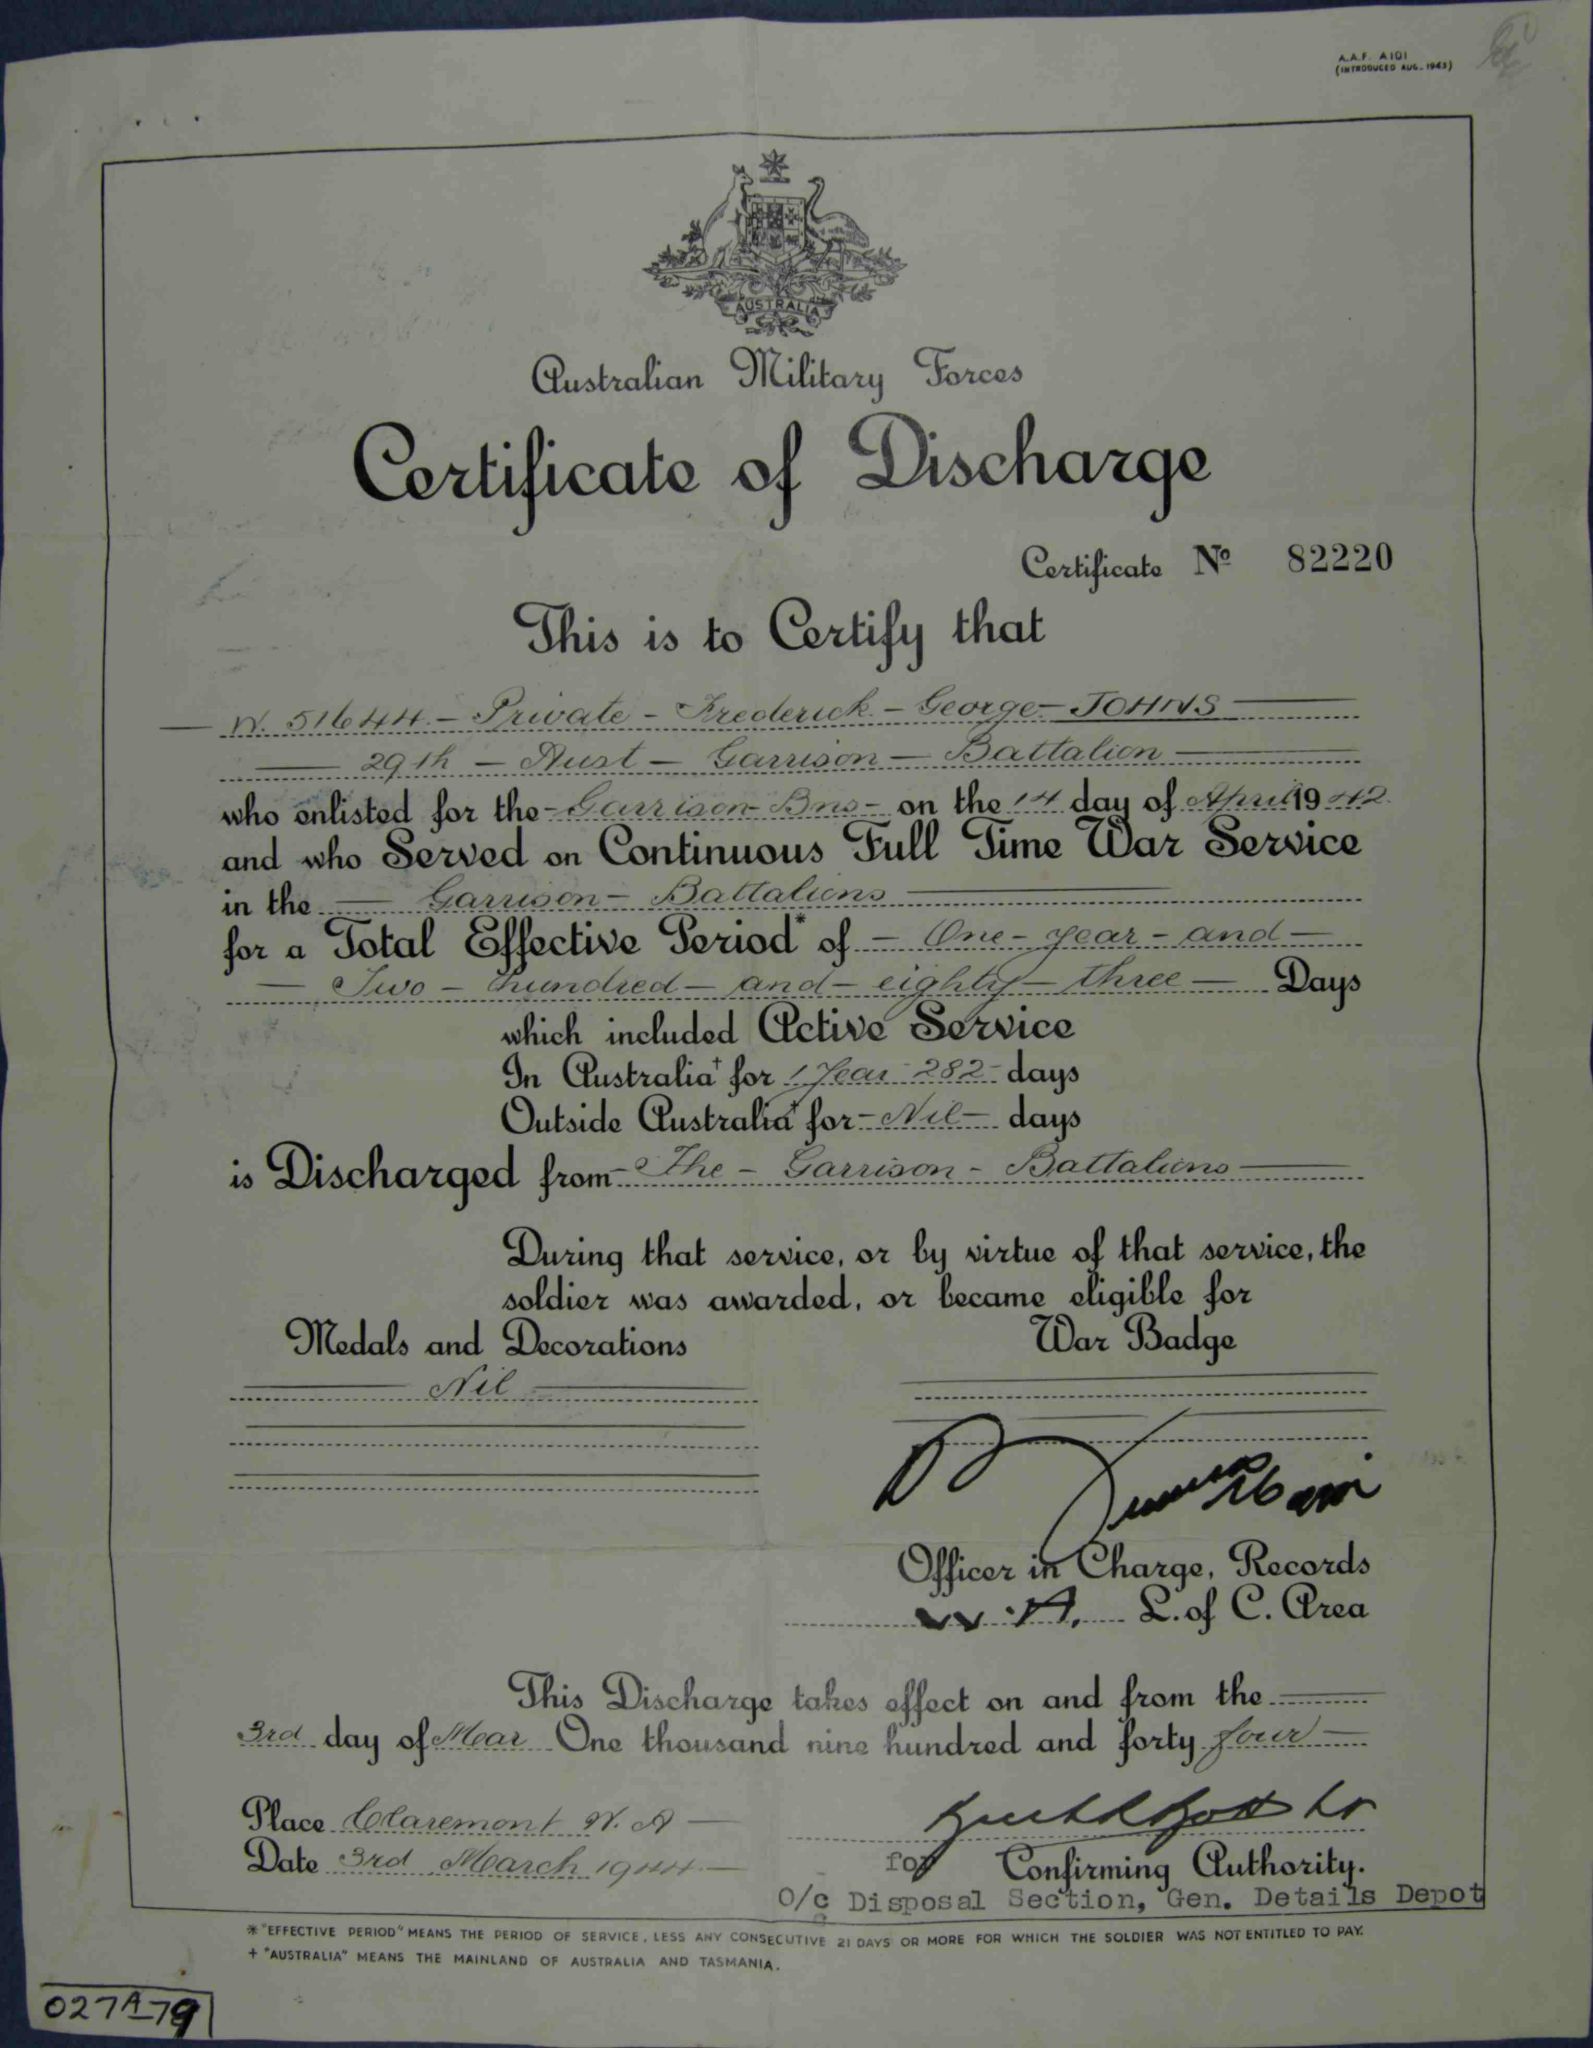 A.A.F. A101
(INTRODUCED AUG. 1943)
AUSTRALIA
Australian Military Forces
Certificate of Discharge
Certificate No 82220
This is to Certify that
W. 51644 - Private - Frederick - George - JOHNS
29th - Aust - Garrison - Battalion
who enlisted for the - Garrison Bns - on the 14 day of April 1942
and who Served on Continuous Full Time War Service
in the - Garrison - Battalions
for a Total Effective Period* of - One - year - and -
- Two - hundred - and - eighty - three - Days
which included Active Service
In Australia+ for 1 Year 282 days
Outside Australia+ for - Nil - days
is Discharged from - The - Garrison - Battalions
During that service, or by virtue of that service, the
soldier was awarded, or became eligible for
Medals and Decorations War Badge
Nil
Officer in Charge, Records
W.A. L. of C. Area
This Discharge takes effect on and from the
3rd day of Mar One thousand nine hundred and forty four
Place Claremont W.A
Date 3rd March 1944
for Confirming Authority.
O/c Disposal Section, Gen. Details Depot
* "EFFECTIVE PERIOD" MEANS THE PERIOD OF SERVICE, LESS ANY CONSECUTIVE 21 DAYS OR MORE FOR WHICH THE SOLDIER WAS NOT ENTITLED TO PAY.
+ "AUSTRALIA" MEANS THE MAINLAND OF AUSTRALIA AND TASMANIA.
027A-79